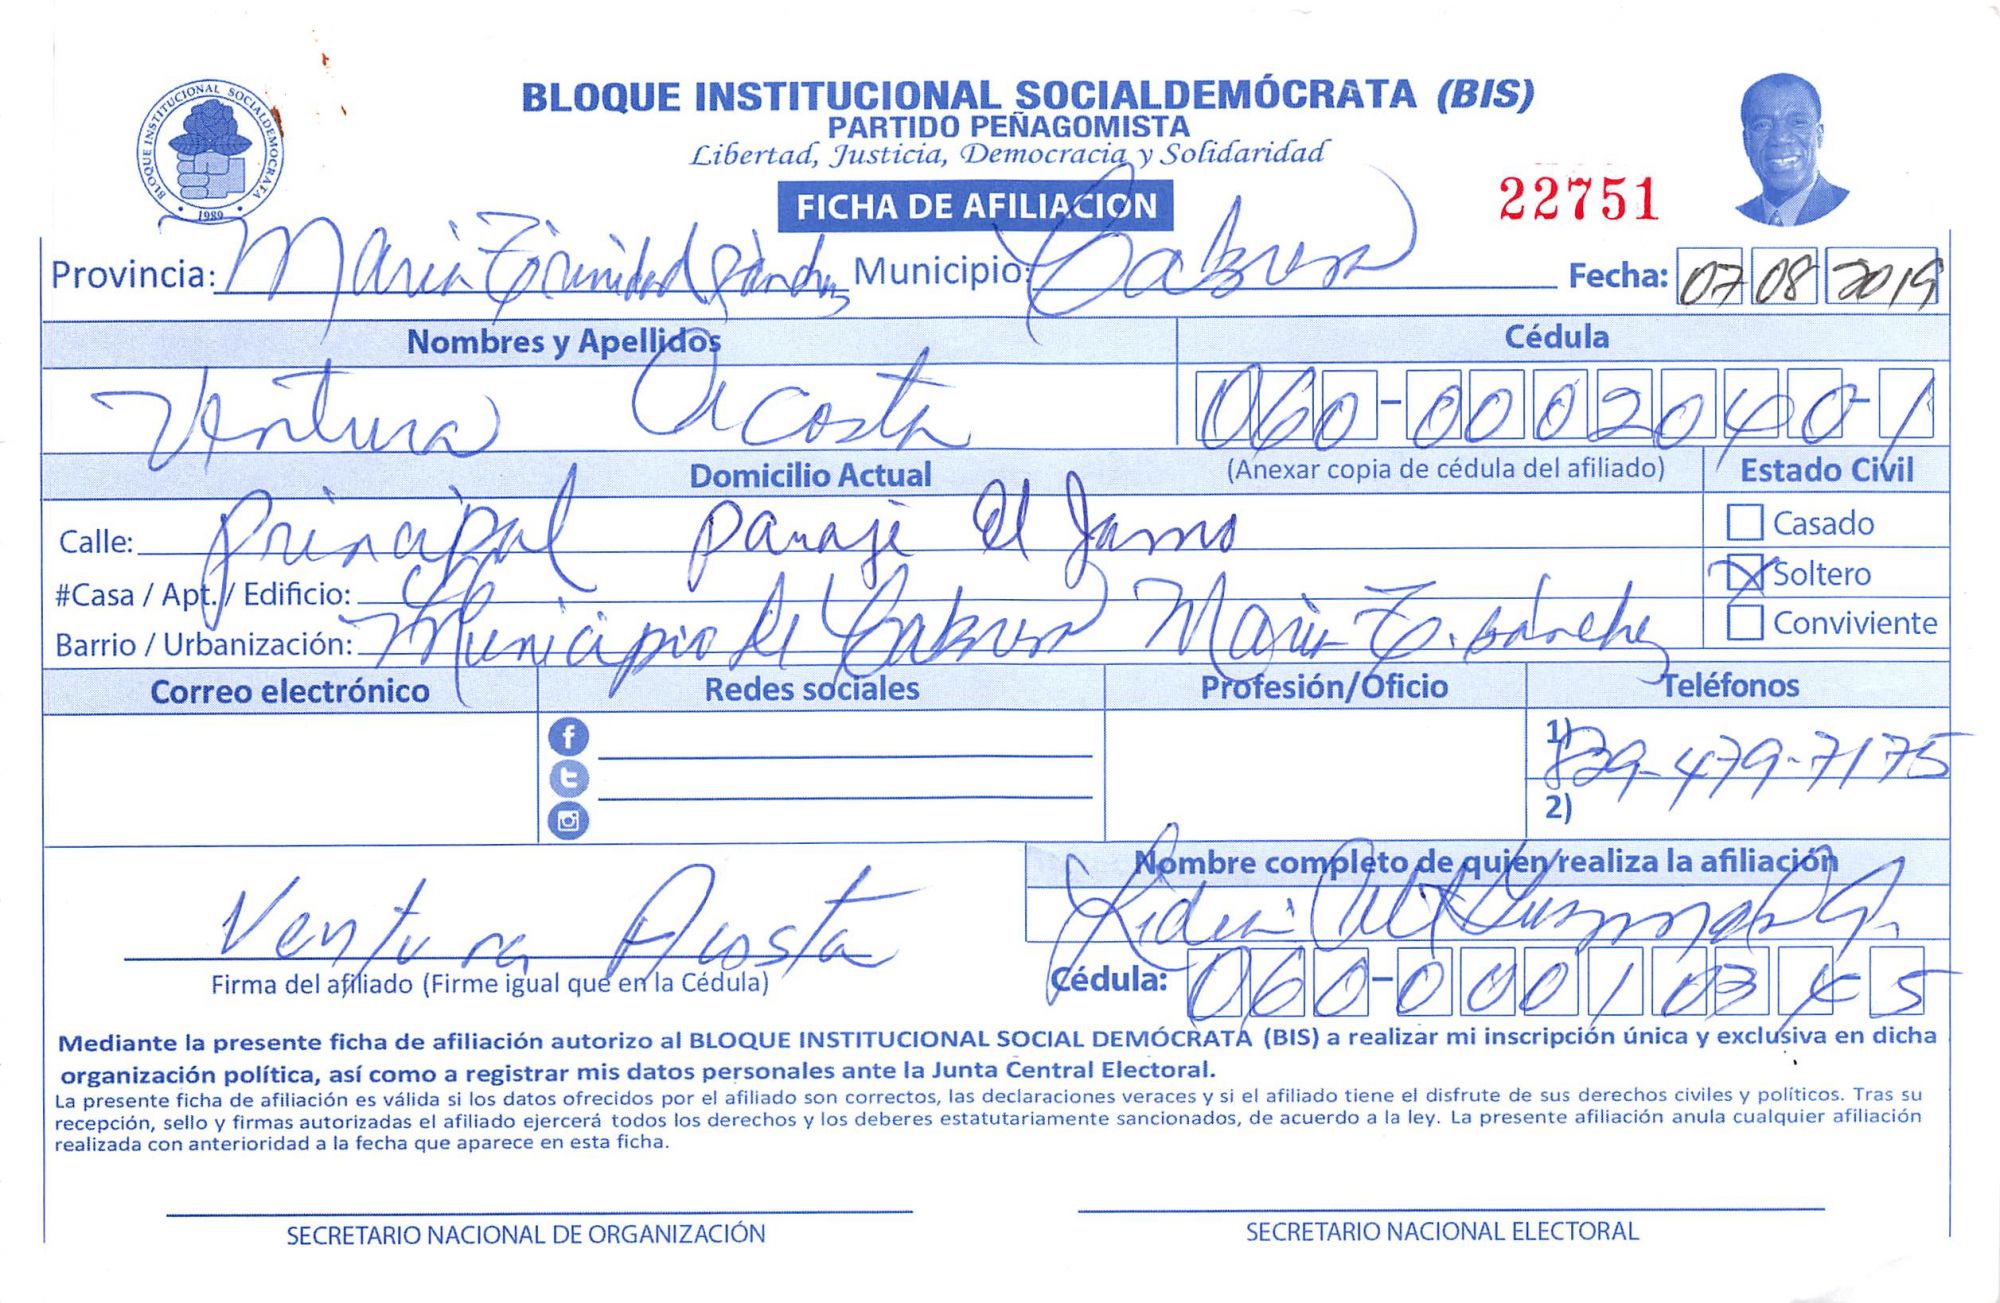 BLOQUE INSTITUCIONAL SOCIALDEMÓCRATA
1989
BLOQUE INSTITUCIONAL SOCIALDEMÓCRATA (BIS)
PARTIDO PEÑAGOMISTA
Libertad, Justicia, Democracia y Solidaridad
FICHA DE AFILIACIÓN
22751
Provincia: Maria Trinidad Sánchez Municipio: Cabrera Fecha: 07 08 2019
Nombres y Apellidos Cédula
Ventura Acosta 060-0002040-1
Domicilio Actual (Anexar copia de cédula del afiliado) Estado Civil
Calle: principal paraje el Jamo Casado
#Casa / Apt. / Edificio: X Soltero
Barrio / Urbanización: Municipio de Cabrera Maria T. Sánchez Conviviente
Correo electrónico Redes sociales Profesión/Oficio Teléfonos
1) 829-479-7175
2)
Nombre completo de quien realiza la afiliación
Ventura Acosta Guzmán
Firma del afiliado (Firme igual que en la Cédula) Cédula: 060-0001034-5
Mediante la presente ficha de afiliación autorizo al BLOQUE INSTITUCIONAL SOCIAL DEMÓCRATA (BIS) a realizar mi inscripción única y exclusiva en dicha
organización política, así como a registrar mis datos personales ante la Junta Central Electoral.
La presente ficha de afiliación es válida si los datos ofrecidos por el afiliado son correctos, las declaraciones veraces y si el afiliado tiene el disfrute de sus derechos civiles y políticos. Tras su
recepción, sello y firmas autorizadas el afiliado ejercerá todos los derechos y los deberes estatutariamente sancionados, de acuerdo a la ley. La presente afiliación anula cualquier afiliación
realizada con anterioridad a la fecha que aparece en esta ficha.
SECRETARIO NACIONAL DE ORGANIZACIÓN SECRETARIO NACIONAL ELECTORAL